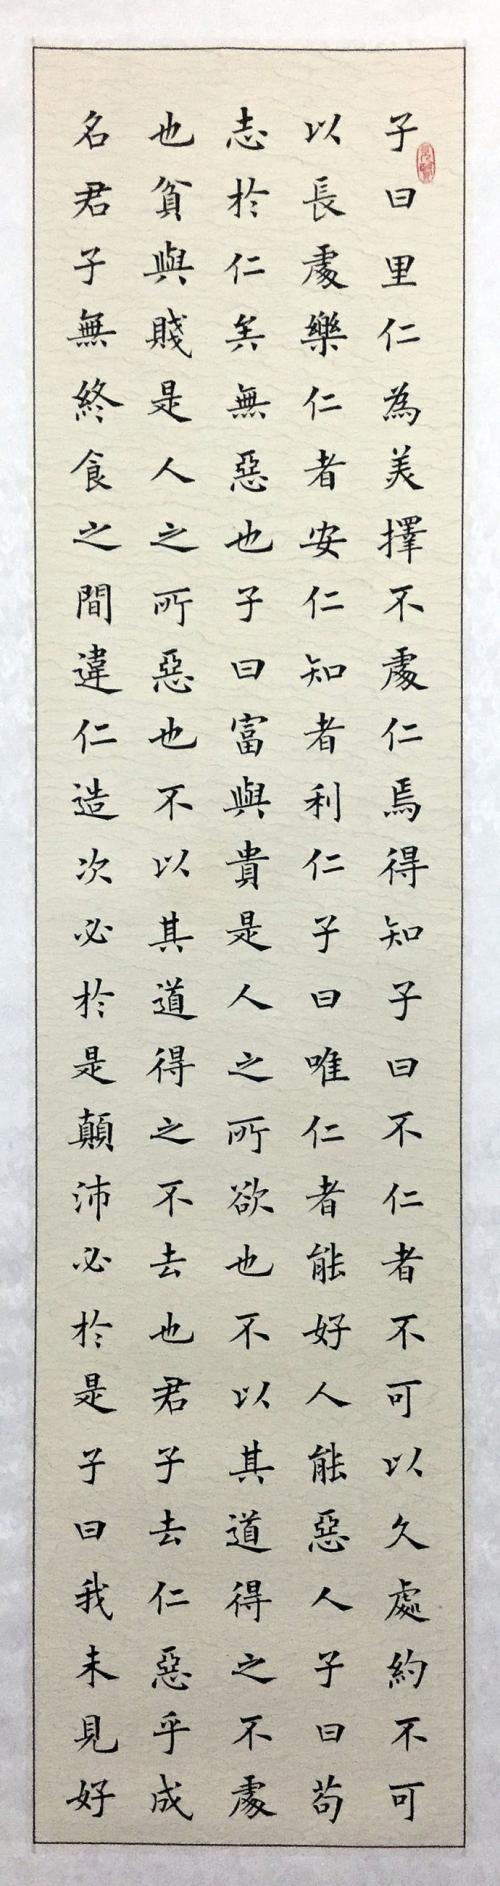 子曰里仁為美擇不處仁焉得知子曰不仁者不可以久處約不可
以長處樂仁者安仁知者利仁子曰唯仁者能好人能惡人子曰苟
志於仁矣無惡也子曰富與貴是人之所欲也不以其道得之不處
也貧與賤是人之所惡也不以其道得之不去也君子去仁惡乎成
名君子無終食之間違仁造次必於是顛沛必於是子曰我未見好